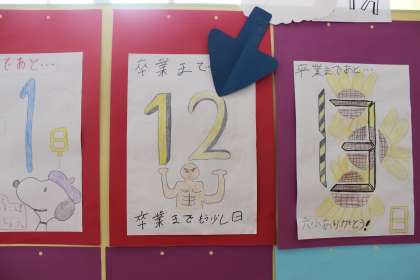 であと…
1
日
卒業まで
12
卒業まで 少し日
卒業まであと…
13
六小ありがとう!
日